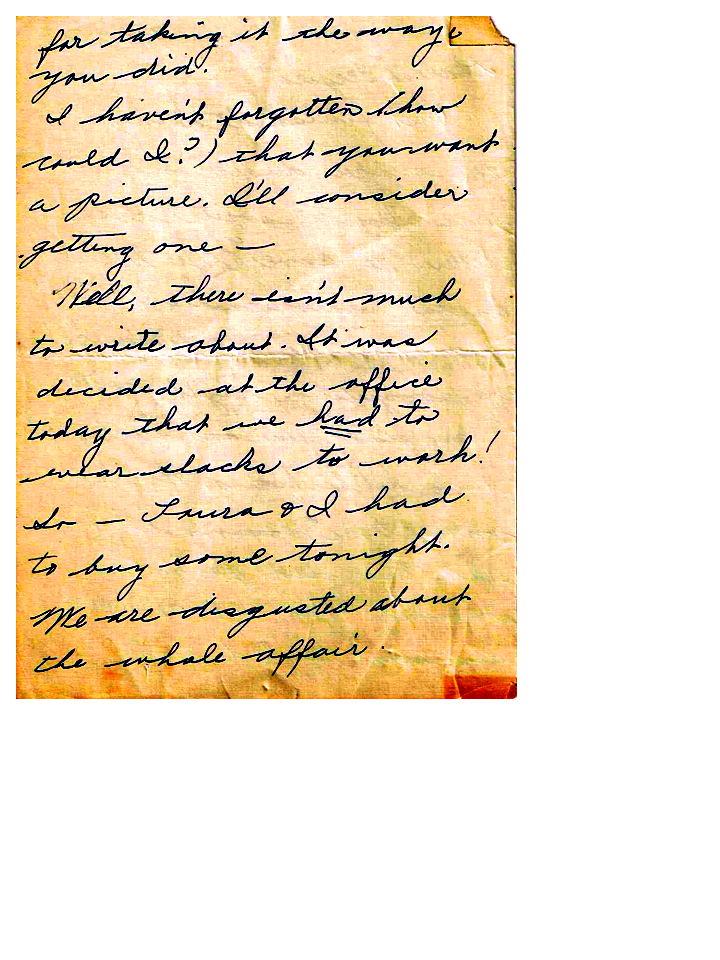 for taking it the way
you did.
I haven't forgotten (how
could I?) that you want
a picture. I'll consider
getting one —
Well, there isn't much
to write about. It was
decided at the office
today that we had to
wear slacks to work!
So — Laura & I had
to buy some tonight.
We are disgusted about
the whole affair.